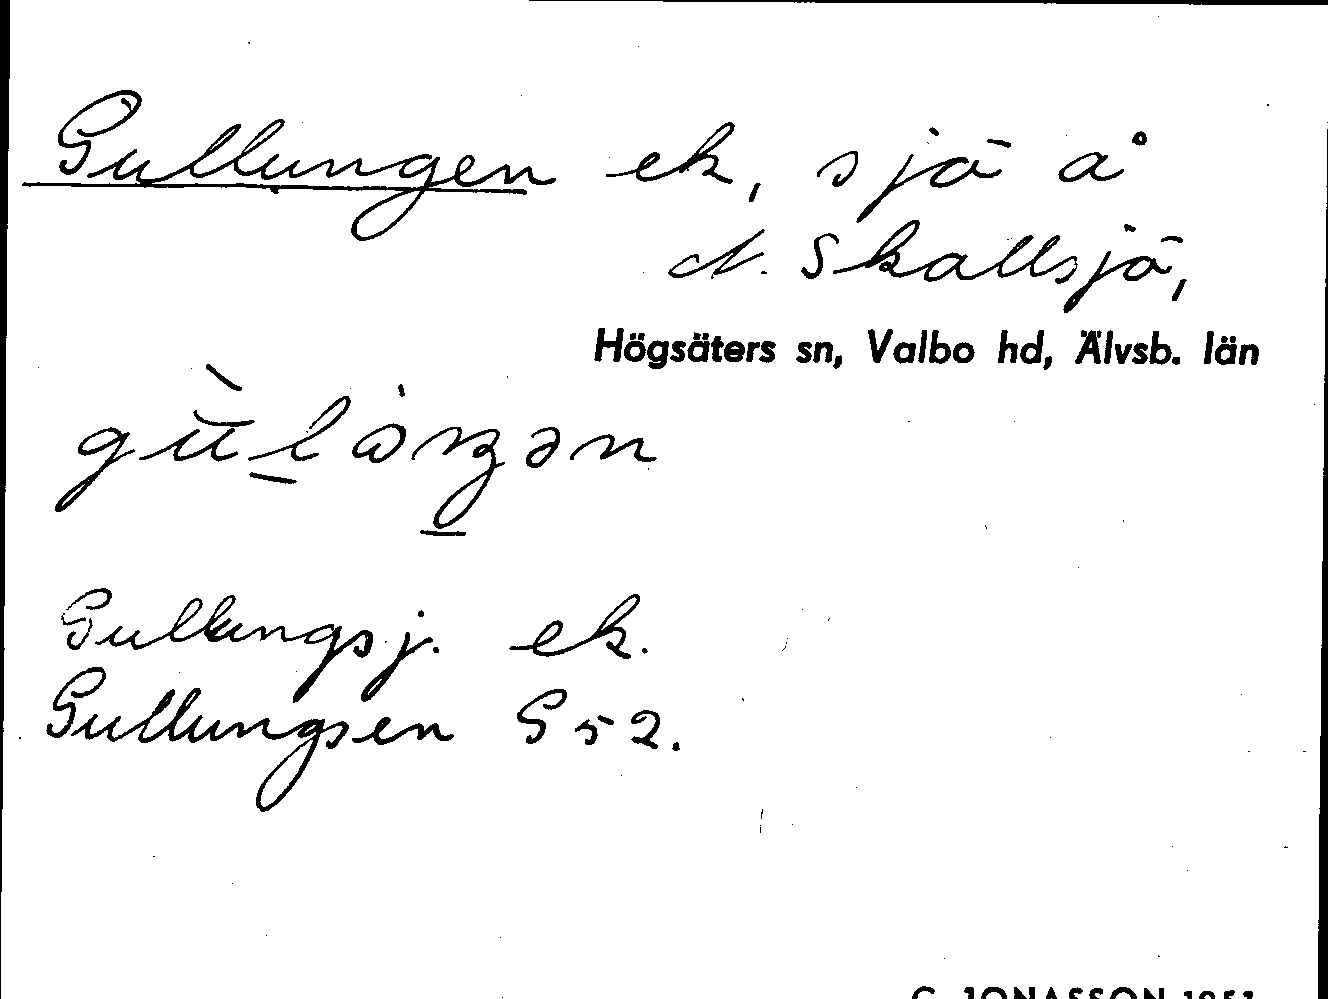 Gullungen ek, sjö å
N. Skallsjö,
Högsäters sn, Valbo hd, Älvsb. län
Gullungsj. ek.
Gullungsen G 52.
C. JONASSON 1951